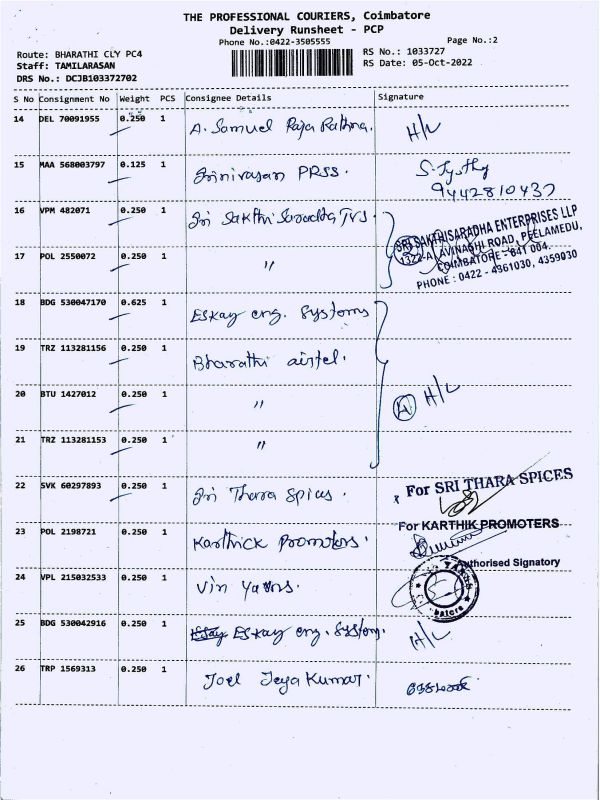 THE PROFESSIONAL COURIERS, Coimbatore
Delivery Runsheet - PCP
Phone No.:0422-3505555
Page No.:2
Route: BHARATHI CLY PC4
RS No.: 1033727
Staff: TAMILARASAN
RS Date: 05-Oct-2022
DRS No.: DCJB103372702
S No Consignment No Weight PCS Consignee Details Signature
14 DEL 70091955 0.250 1 A. Samuel Raja Rathna. H/L
15 MAA 568003797 0.125 1 Srinivasan PRSS.
9442810437
16 VPM 482071 0.250 1 Sri Sakthi Saradha TVS.
SRI SAKTHISARADHA ENTERPRISES LLP
1322-A, AVINASHI ROAD, PEELAMEDU,
17 POL 2550072 0.250 1 "
COIMBATORE - 641 004.
PHONE : 0422 - 4361030, 4359030
18 BDG 530047170 0.625 1 Eskay eng. Systems
19 TRZ 113281156 0.250 1 Bharathi airtel.
20 BTU 1427012 0.250 1 " H/L
21 TRZ 113281153 0.250 1 "
22 SVK 60297893 0.250 1 Sri Thara Spices.
For SRI THARA SPICES
23 POL 2198721 0.250 1 Karthick Promoters.
For KARTHIK PROMOTERS
Authorised Signatory
24 VPL 215032533 0.250 1 Vin Yarns.
25 BDG 530042916 0.250 1 Eskay eng. System. H/L
26 TRP 1569313 0.250 1 Joel Jeya Kumar.